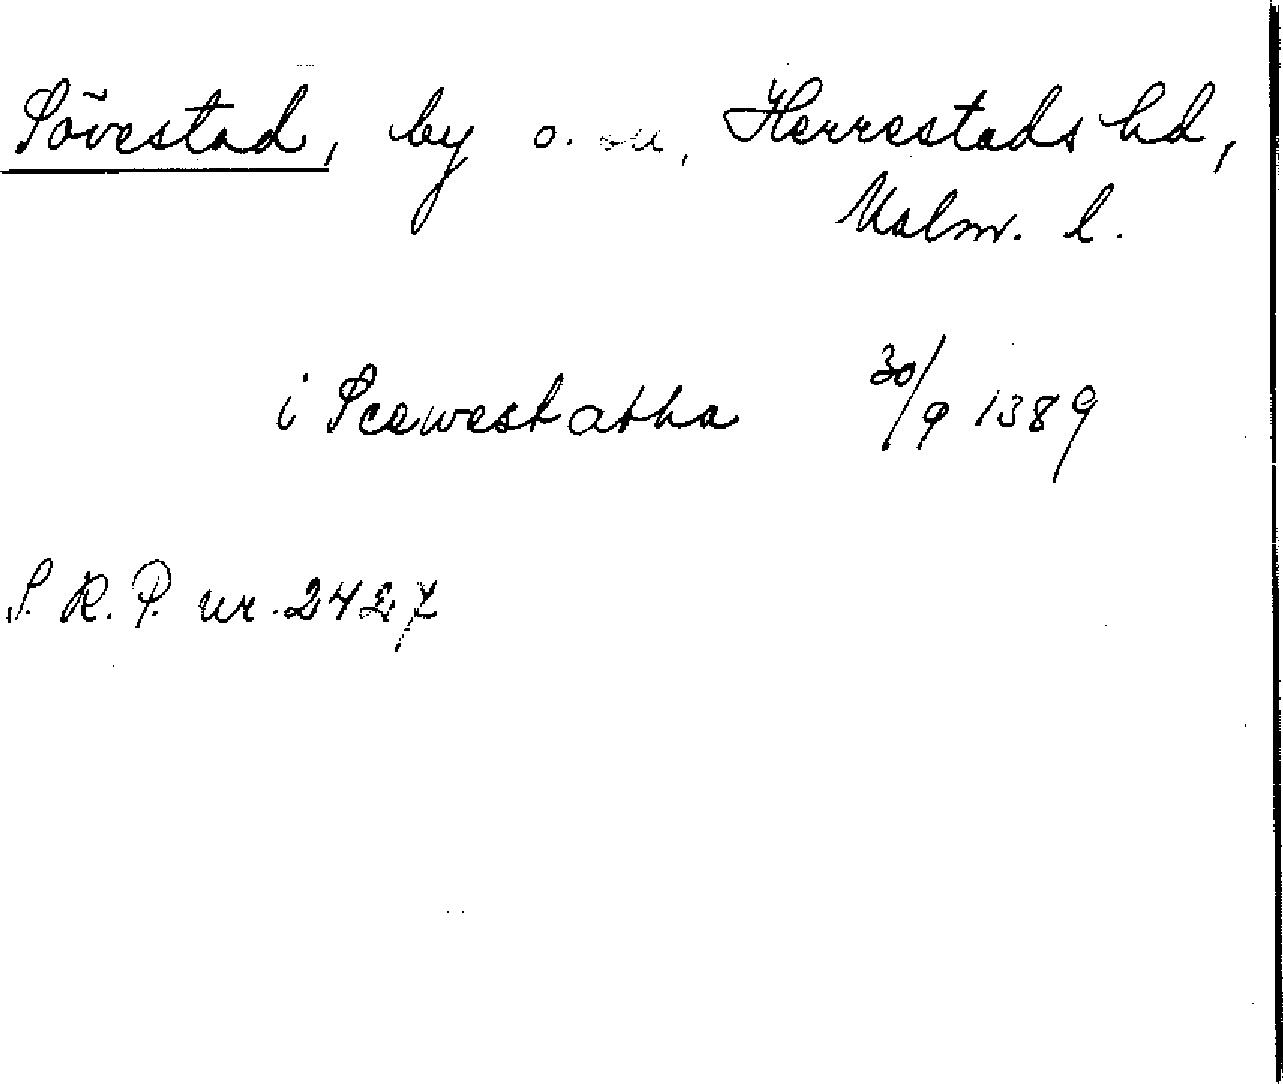 Sövestad, by o. sn, Herrestads hd,
Malm. l.
i Scewestatha 30/9 1389
S. R. P. nr. 2427